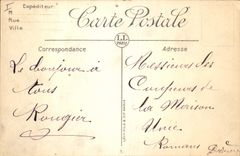 Expéditeur
M
Rue
Ville
Carte Postale
LL
PARIS
Correspondance
Adresse
Le bonjour à
tous
Rougier
Messieurs les
de la Maison
Romans